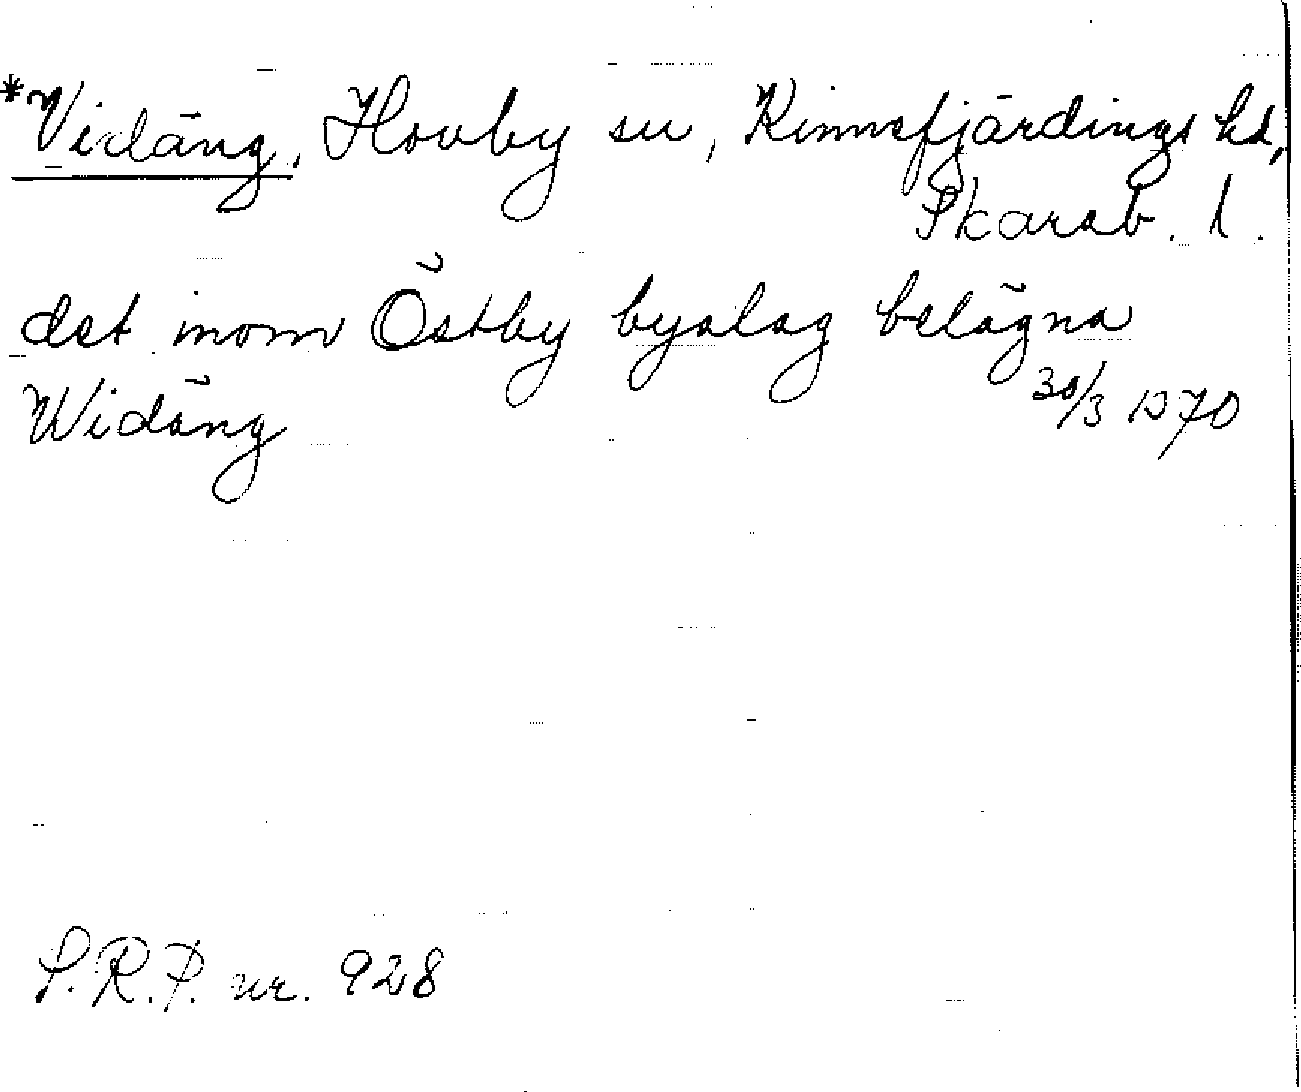 *Vidäng, Hovby sn, Kinnefjärdings hd,
Skarab. l.
det inom Östby byalag belägna
Widäng 30/3 1370
S.R.P. nr. 928